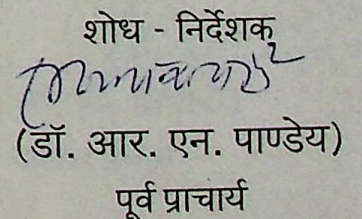 शोध - निर्देशक
(डॉ. आर. एन. पाण्डेय)
पूर्व प्राचार्य